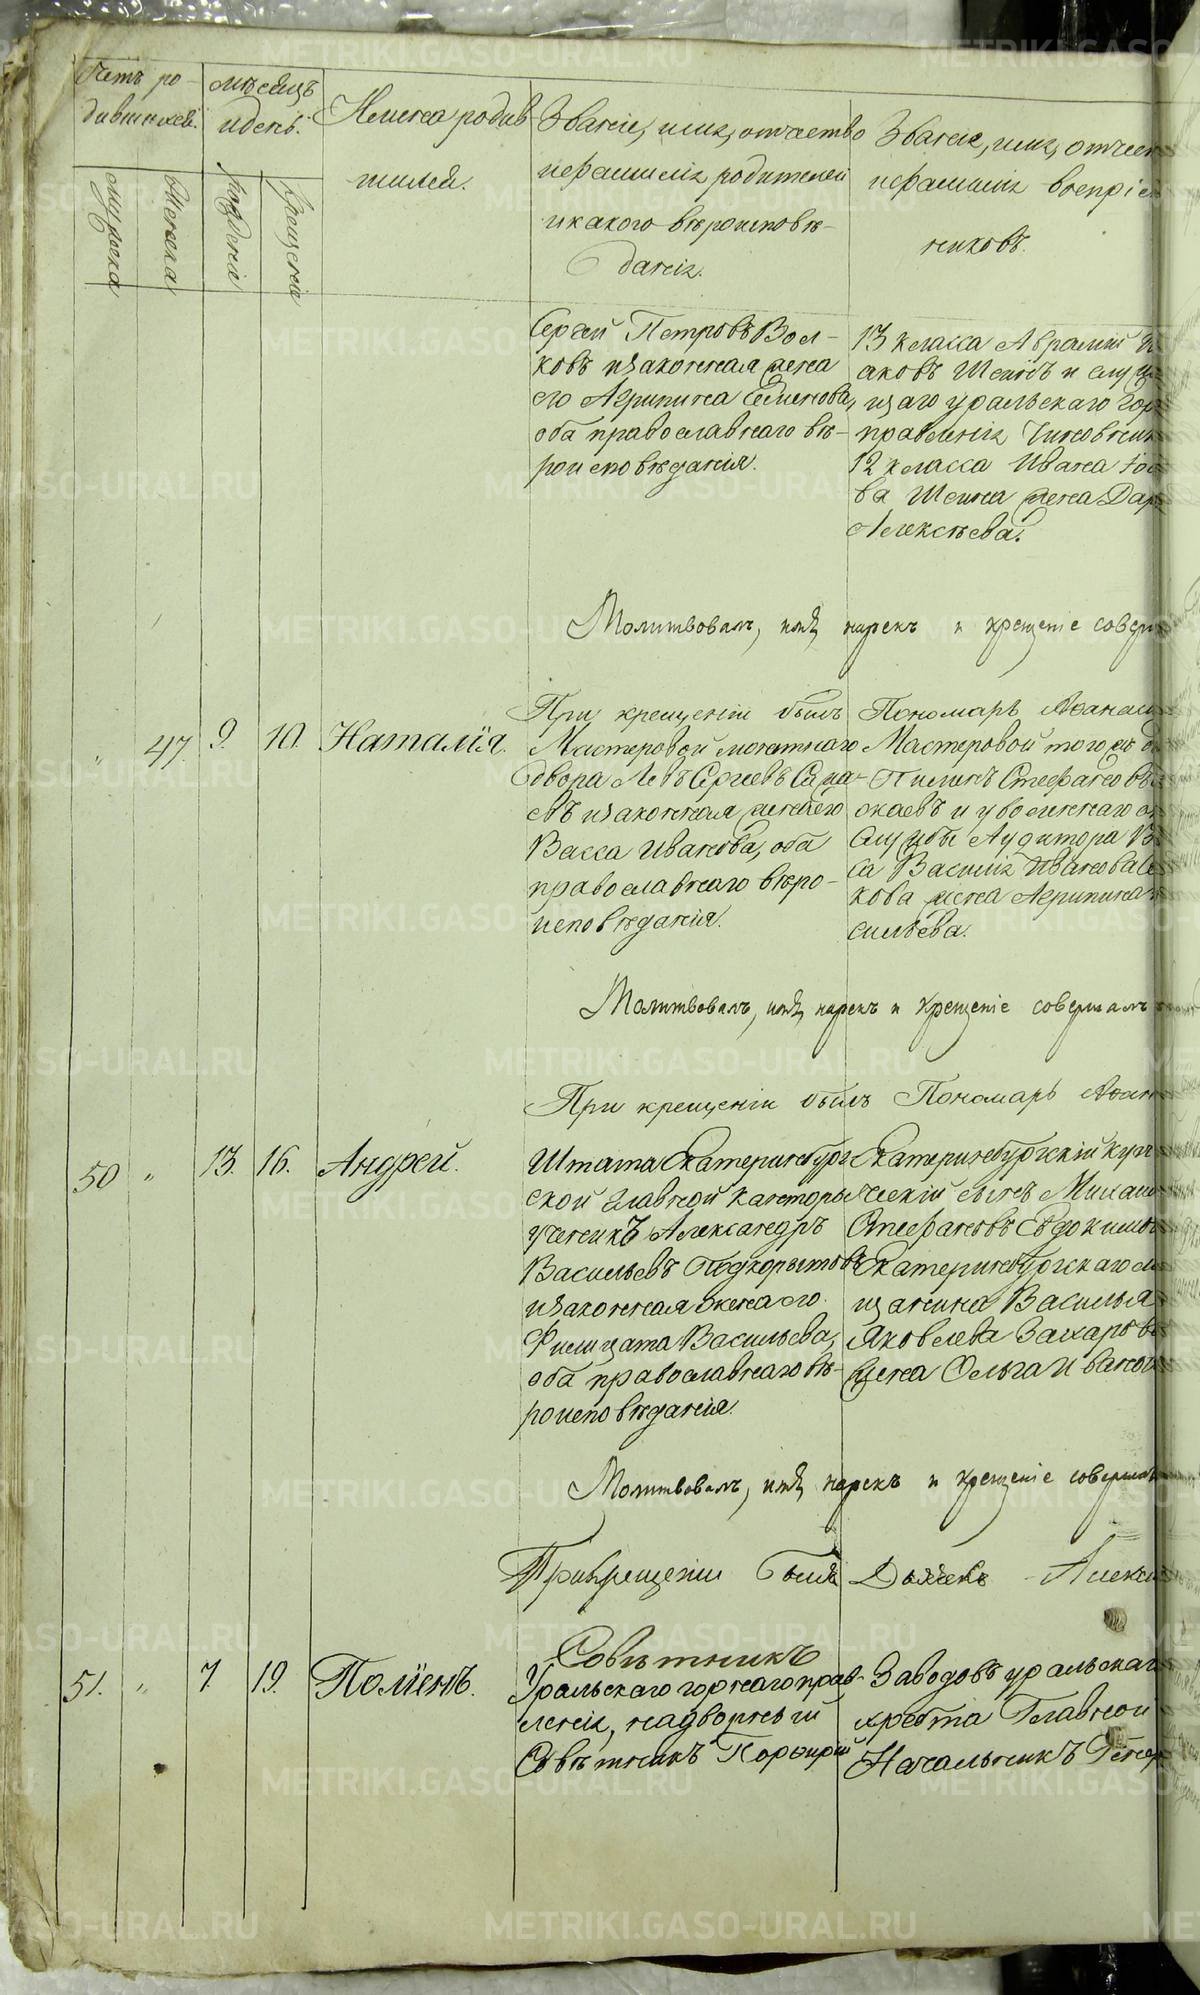 Счетъ ро-
дившихся.
Мѣсяцъ
и день.
мужска
женска
рожденія
крещенія
Имена родив
шихся.
Званіе, имя, отчество
и фамилія родителей
и какого вѣроисповѣ-
данія.
Званіе, имя, отчес
и фамилія воспріем
никовъ.
Сергей Петровъ Вол-
ковъ и законная жена
его Агрипина Семенова,
оба православнаго вѣ-
роисповѣданія.
13 класса Аврамій И
аковъ Шеинъ и служ
щаго уральскаго Гор
правленія Чиновник
12 класса Ивана
ва Шеина жена Дар
Алексѣева.
Молитвовалъ, имя нарекъ и крещеніе совер
При крещеніи былъ Пономарь Аѳанас
„
47.
9.
10.
Наталія.
Мастеровой монетнаго
двора Левъ Сергѣевъ
евъ и законная жена его
Васса Иванова, оба
православнаго вѣро-
исповѣданія.
Мастеровой того жъ
Стефановъ
и уволеннаго от
службы Аудитора
Василія Иванова
кова жена Агрипина
сильева.
Молитвовалъ, имя нарекъ и крещеніе совершалъ
При крещеніи былъ Пономарь Аѳан
50
„
13.
16.
Андрей.
Штата Екатеринбург
ской главной канторы
ученикъ Александръ
Васильевъ Подкорытовъ
и законная жена его
Филицата Васильева,
оба православнаго вѣ-
роисповѣданія.
Екатеринбургскій куп
ческій сынъ Михаи
Стефановъ Евдокимов
Екатеринбургскаго м
щанина Василья
Яковлева Захарова
жена Ольга Иванов
Молитвовалъ, имя нарекъ и крещеніе соверша
При крещеніи былъ Дьячекъ Алекс
51.
„
7
19.
Поліенъ.
Совѣтникъ
Уральскаго горнаго прав-
ленія, надворный
Совѣтникъ Порфирій
Заводовъ уральскаг
хребта Главной
Начальникъ Генер
METRIKI.GASO-URAL.RU